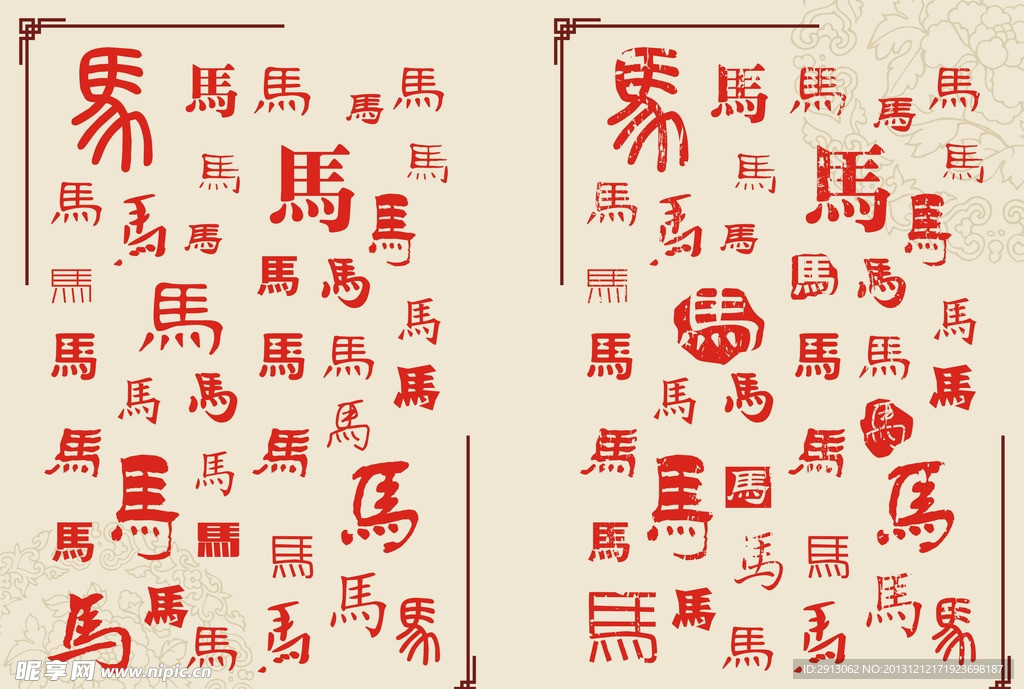 馬 馬 馬 馬 馬 馬 馬 馬 馬 馬
馬 馬 馬 馬 馬 馬 馬 馬 馬 馬
馬 馬 馬 馬 馬 馬 馬 馬
馬 馬 馬 馬 馬 馬 馬 馬
馬 馬 馬 馬 馬 馬 馬 馬
馬 馬 馬 馬 馬 馬 馬 馬
馬 馬 馬 馬 馬 馬 馬 馬
馬 馬 馬 馬 馬 馬 馬 馬
馬 馬 馬 馬 馬 馬
昵享网 www.nipic.cn
ID:2913062 NO:20131212171923698187